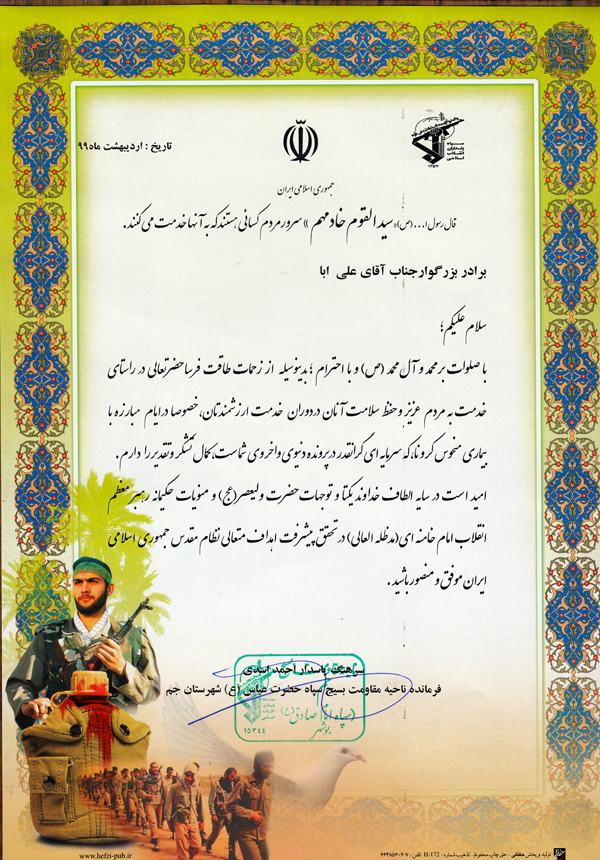 سپاه
پاسداران
انقلاب
اسلامی
تاریخ : اردیبهشت ماه ۹۹
جمهوری اسلامی ایران
قال رسول ا...(ص): سید القوم خادمهم » سرور مردم کسانی هستند که به آنها خدمت می کنند.
برادر بزرگوار جناب آقای علی ابا
سلام علیکم؛
با صلوات بر محمد و آل محمد (ص) و با احترام ؛ بدینوسیله از زحمات طاقت فرسا حضرتعالی در راستای
خدمت به مردم عزیز و حفظ سلامت آنان در دوران خدمت ارزشمندتان، خصوصا در ایام مبارزه با
بیماری منحوس کرونا، که سرمایه ای گرانقدر در پرونده دنیوی و اخروی شماست، کمال تشکر و تقدیر را دارم .
امید است در سایه الطاف خداوند یکتا و توجهات حضرت ولیعصر (عج) و منویات حکیمانه رهبر معظم
انقلاب امام خامنه ای (مدظله العالی) در تحقق پیشرفت اهداف متعالی نظام مقدس جمهوری اسلامی
ایران موفق و منصور باشید .
سرهنگ پاسدار احمد اسدی
فرمانده ناحیه مقاومت بسیج سپاه حضرت عباس (ع) شهرستان جم
(سپاه امام صادق (ع)
بوشهر
۱۵۳۴۴
www.hefzi-pub.ir
تولید و پخش حفظی - حق چاپ محفوظ - تذهیب شماره : H-172 تلفن : ۷-۶۶۴۸۵۶۰۶